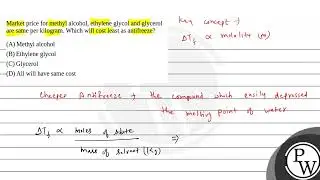 Market price for methyl alcohol, ethylene glycol and glycerol
are same per kilogram. Which will cost least as antifreeze?
(A) Methyl alcohol
(B) Ethylene glycol
(C) Glycerol
(D) All will have same cost
Key concept →
ΔTf ∝ molality (m)
Cheeper Antifreeze → the compound which easily depressed
the melting point of water
ΔTf ∝ moles of solute
mass of solvent (kg) ⇒
PW